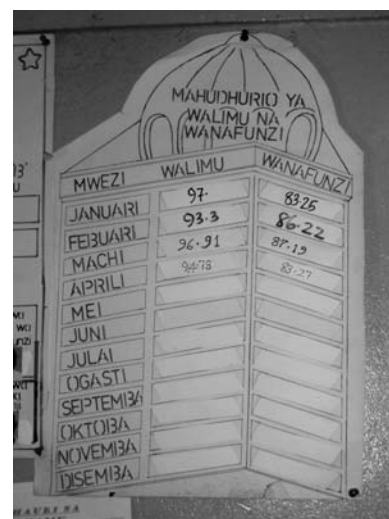 MAHUDHURIO YA
WALIMU NA
WANAFUNZI
MWEZI WALIMU WANAFUNZI
JANUARI 97. 83.25
FEBUARI 93.3 86.22
MACHI 96.91 87.19
APRILI 94.78 83.27
MEI
JUNI
JULAI
OGASTI
SEPTEMBA
OKTOBA
NOVEMBA
DISEMBA